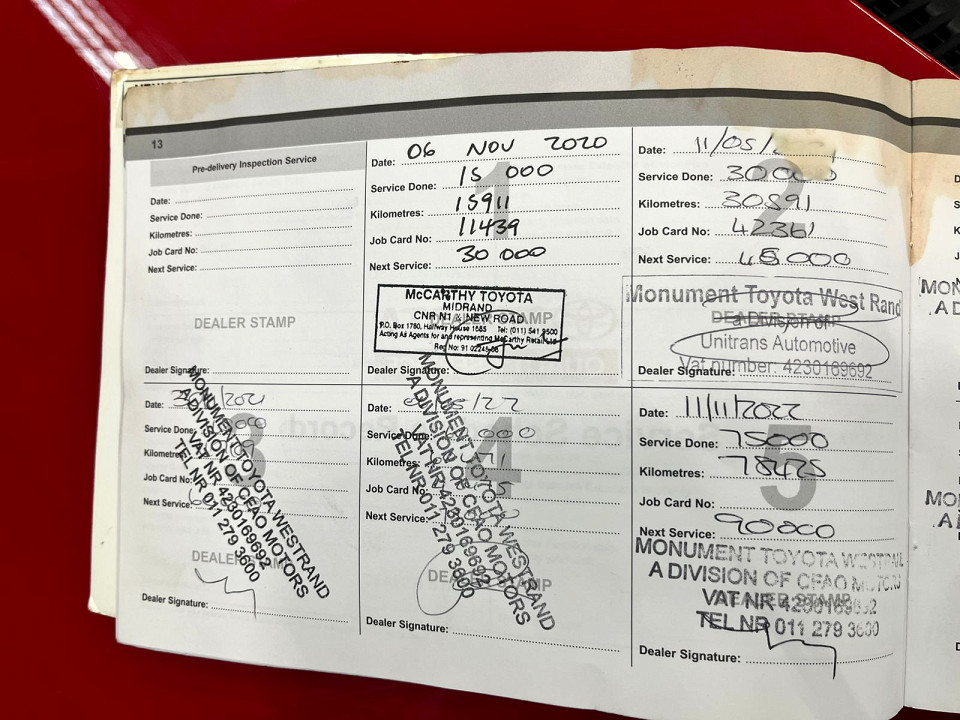 13
Pre-delivery Inspection Service
Date:
Service Done:
Kilometres:
Job Card No:
Next Service:
DEALER STAMP
Dealer Signature:
1
Date: 06 NOV 2020
Service Done: 15 000
Kilometres: 15911
Job Card No: 11439
Next Service: 30 000
McCARTHY TOYOTA
MIDRAND
CNR N1 & NEW ROAD
P.O. Box 1780, Halfway House 1685 Tel: (011) 541 9500
Acting As Agents for and representing McCarthy Retail Ltd
Reg No: 91
DEALER STAMP
Dealer Signature:
2
Date: 11/05/
Service Done: 30000
Kilometres: 30591
Job Card No: 42361
Next Service: 45000
Monument Toyota West Rand
DEALER STAMP
a Division of
Unitrans Automotive
Vat number: 4230169692
Dealer Signature:
3
Date: /2021
Service Done:
Kilometres:
Job Card No:
Next Service:
MONUMENT TOYOTA WESTRAND
A DIVISION OF CFAO MOTORS
VAT NR 4230169692
TEL NR 011 279 3600
DEALER STAMP
Dealer Signature:
4
Date: /22
Service Done: 000
Kilometres:
Job Card No:
Next Service:
MONUMENT TOYOTA WESTRAND
A DIVISION OF CFAO MOTORS
VAT NR 4230169692
TEL NR 011 279 3600
DEALER STAMP
Dealer Signature:
5
Date: 11/11/2022
Service Done: 75000
Kilometres: 78425
Job Card No:
Next Service: 90000
MONUMENT TOYOTA WESTRAND
A DIVISION OF CFAO MOTORS
DEALER STAMP
VAT NR 4230169692
TEL NR 011 279 3600
Dealer Signature: